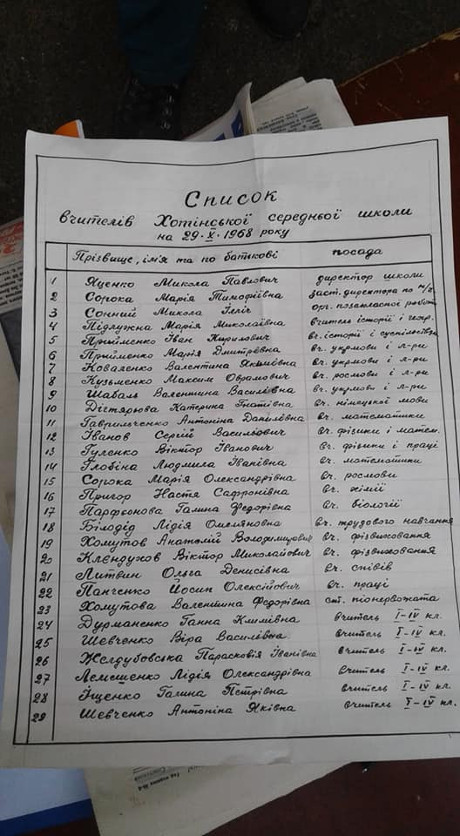 Список
вчителів Хотінської середньої школи
на 29.X.1968 року
Прізвище, ім'я та по батькові посада
1 Яценко Микола Павлович директор школи
2 Сорока Марія Тимофіївна заст. директора по н/в
3 Сонний Микола Ілліч орг. позакласної роботи
4 Підлужна Марія Миколаївна вчитель історії і геогр.
5 Прийменко Іван Кирилович вч. історії і суспільствозн.
6 Прийменко Марія Дмитрівна вч. укрмови і л-ри
7 Коваленко Валентина Якимівна вч. укрмови і л-ри
8 Кузьменко Максим Обрамович вч. росмови і л-ри
9 Шабаль Валентина Василівна вч. укрмови і л-ри
10 Дігтярьова Катерина Гнатівна вч. німецької мови
11 Гаврильченко Антоніна Данилівна вч. математики
12 Іванов Сергій Васильович вч. фізики і матем.
13 Гуленко Віктор Іванович вч. фізики і праці
14 Глобіна Людмила Іванівна вч. математики
15 Сорока Марія Олександрівна вч. росмови
16 Пригор Настя Сафронівна вч. хімії
17 Парфьонова Галина Федорівна вч. біології
18 Білодід Лідія Омелянівна вч. трудового навчання
19 Хомутов Анатолій Володимирович вч. фізвиховання
20 Клєндухов Віктор Миколайович вч. фізвиховання
21 Литвин Ольга Денисівна вч. співів
22 Панченко Йосип Олексійович вч. праці
23 Хомутова Валентина Федорівна ст. піонервожата
24 Дурманенко Ганна Климівна Вчитель I-IV кл.
25 Шевченко Віра Василівна вчитель I-IV кл.
26 Желдубовська Парасковія Іванівна вчитель I-IV кл.
27 Лемешенко Лідія Олександрівна вчитель I-IV кл.
28 Іщенко Галина Петрівна вчитель I-IV кл.
29 Шевченко Антоніна Яківна вчитель I-IV кл.